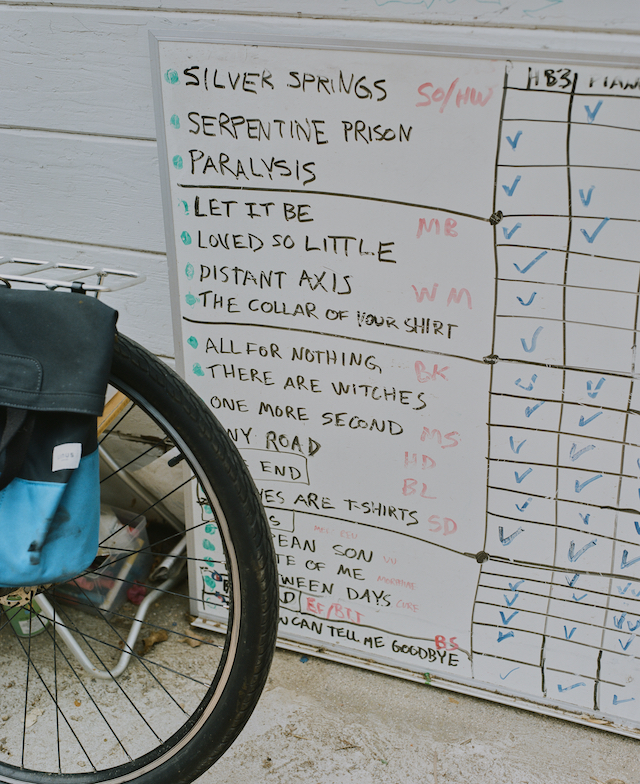 HB3
SILVER SPRINGS SO/HW
SERPENTINE PRISON
PARALYSIS
LET IT BE MB
LOVED SO LITTLE
DISTANT AXIS WM
THE COLLAR OF YOUR SHIRT
ALL FOR NOTHING BK
THERE ARE WITCHES
ONE MORE SECOND MS
NY ROAD HD
END BL
ES ARE T-SHIRTS SD
S
EAN SON
TE OF ME
WEEN DAYS CURE
D
CAN TELL ME GOODBYE BS